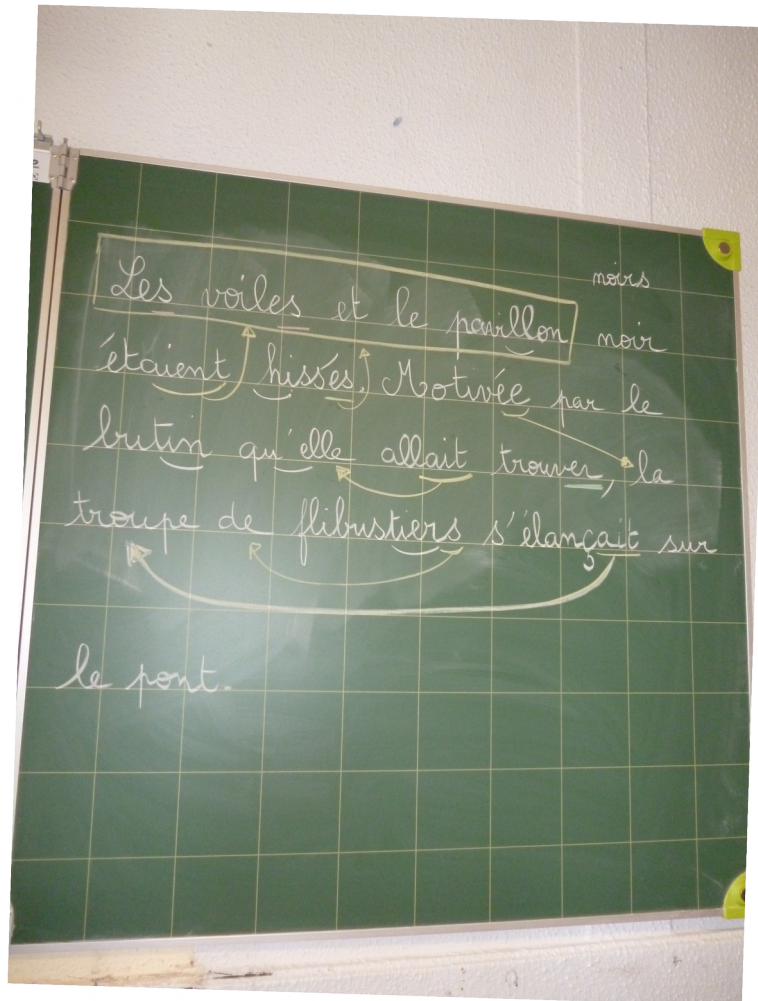 noirs
Les voiles et le pavillon noir
étaient hissés. Motivée par le
butin qu'elle allait trouver, la
troupe de flibustiers s'élançait sur
le pont.